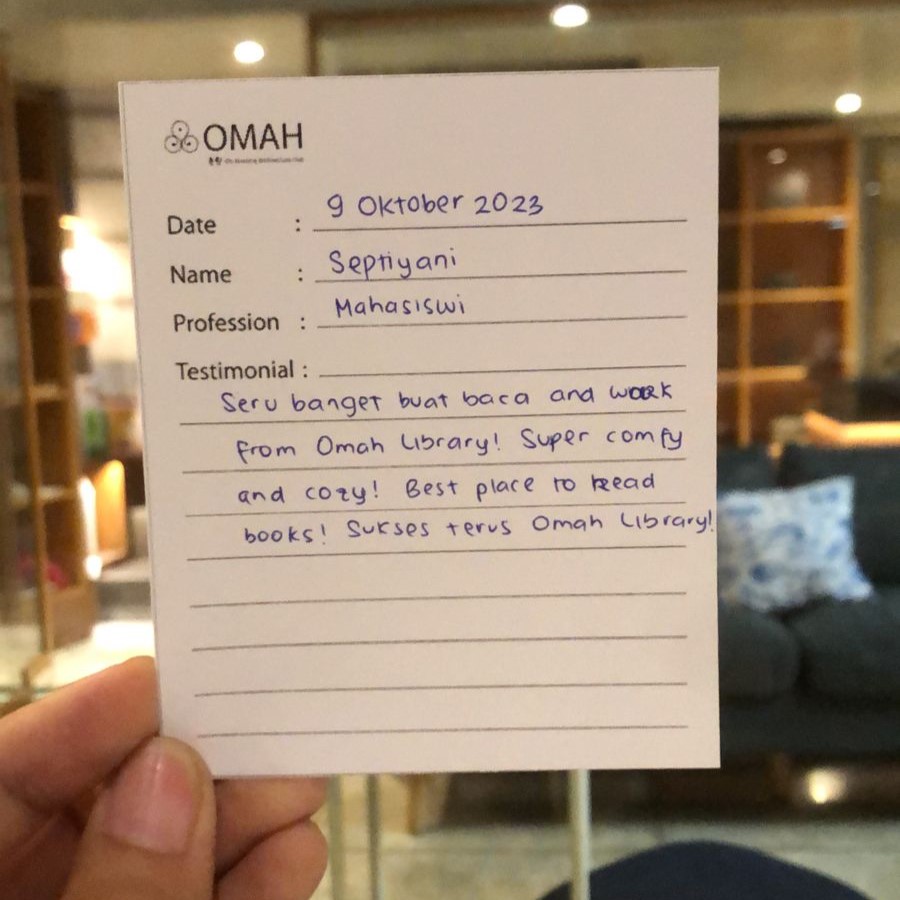 OMAH
Date : 9 Oktober 2023
Name : Septiyani
Profession : Mahasiswi
Testimonial :
Seru banget buat baca and work
from Omah Library! Super comfy
and cozy! Best place to read
books! Sukses terus Omah Library!